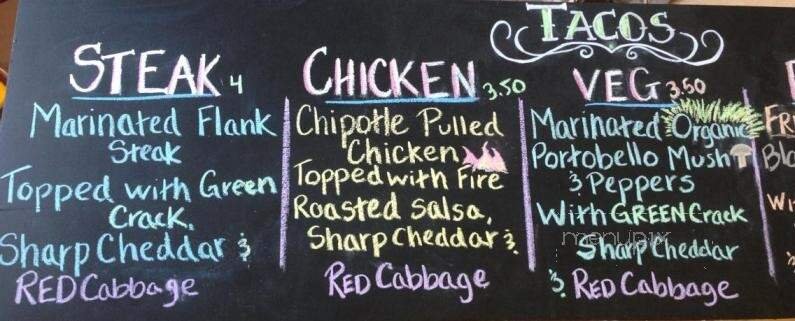 TACOS
STEAK 4
Marinated Flank
Steak
Topped with Green
Crack,
Sharp Cheddar &
RED Cabbage
CHICKEN 3.50
Chipotle Pulled
Chicken
Topped with Fire
Roasted Salsa,
Sharp Cheddar &
RED Cabbage
VEG 3.50
Marinated Organic
Portobello Mush
& Peppers
With GREEN Crack
Sharp Cheddar
& RED Cabbage
menupix